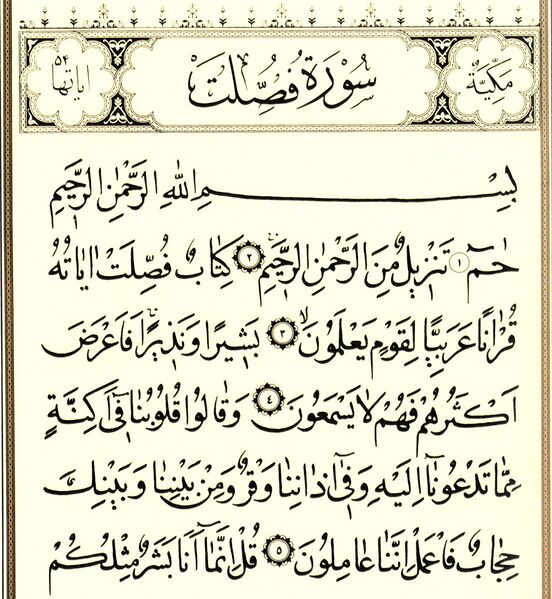 مَكِّيَّةٌ سُورَةُ فُصِّلَتْ ٥٤ اٰيَاتُهَا
بِسْمِ اللّٰهِ الرَّحْمٰنِ الرَّح۪يمِ
حٰمٓ ١ تَنْز۪يلٌ مِنَ الرَّحْمٰنِ الرَّح۪يمِۚ ٢ كِتَابٌ فُصِّلَتْ اٰيَاتُهُ
قُرْاٰنًا عَرَبِيًّا لِقَوْمٍ يَعْلَمُونَۙ ٣ بَش۪يرًا وَنَذ۪يرًاۚ فَاَعْرَضَ
اَكْثَرُهُمْ فَهُمْ لَا يَسْمَعُونَ ٤ وَقَالُوا قُلُوبُنَا ف۪ٓي اَكِنَّةٍ
مِمَّا تَدْعُونَٓا اِلَيْهِ وَف۪ٓي اٰذَانِنَا وَقْرٌ وَمِنْ بَيْنِنَا وَبَيْنِكَ
حِجَابٌ فَاعْمَلْ اِنَّنَا عَامِلُونَ ٥ قُلْ اِنَّمَٓا اَنَا۬ بَشَرٌ مِثْلُكُمْ